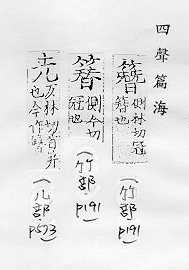 四聲篇海
側林切冠
簪也
(竹部 p191)
簪 側今切
冠也
(竹部 p191)
林切首笄
也今作簪
(儿部 p573)